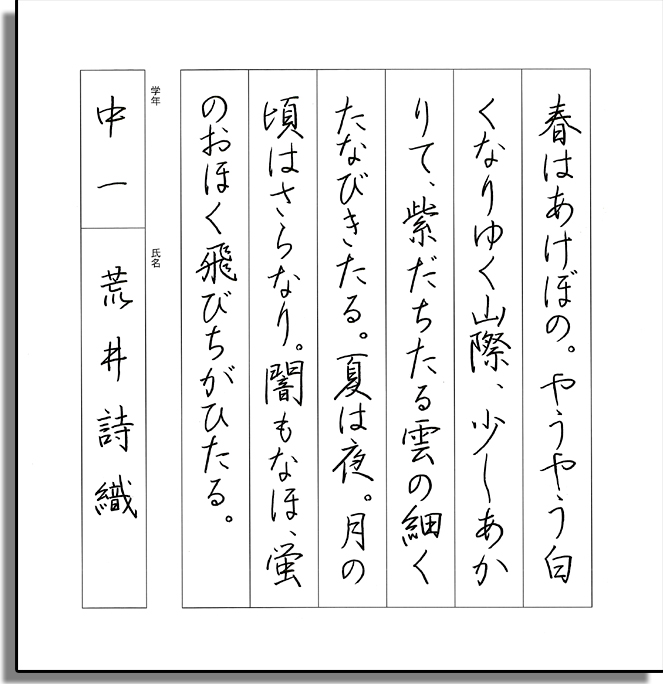 春はあけぼの。やうやう白
くなりゆく山際、少しあか
りて、紫だちたる雲の細く
たなびきたる。夏は夜。月の
頃はさらなり。闇もなほ、蛍
のおほく飛びちがひたる。
学年
中一
氏名
荒井詩織